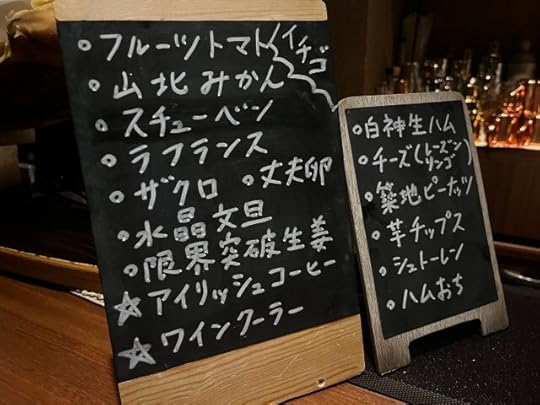 •フルーツトマト
イチゴ
•山北みかん
•スチューベン
•ラフランス
•ザクロ •丈夫卵
•水晶文旦
•限界突破生姜
☆アイリッシュコーヒー
☆ワインクーラー
•白神生ハム
•チーズ(レーズン リンゴ)
•築地ピーナッツ
•芋チップス
•シュトーレン
•ハムおち